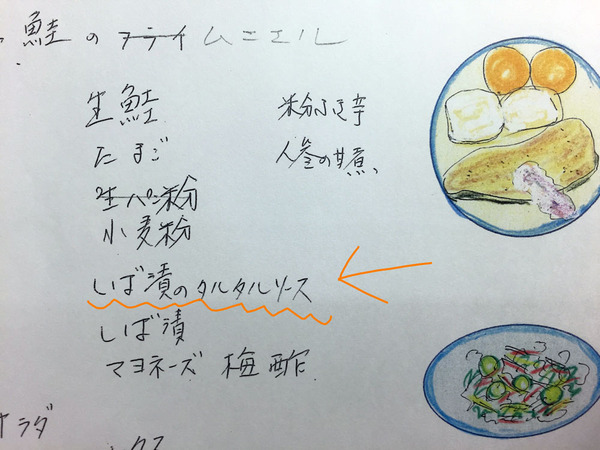 鮭のフライムニエル
生鮭 粉ふき芋
たまご 人参の甘煮
生パン粉
小麦粉
しば漬のタルタルソース
しば漬
マヨネーズ 梅酢
サラダ